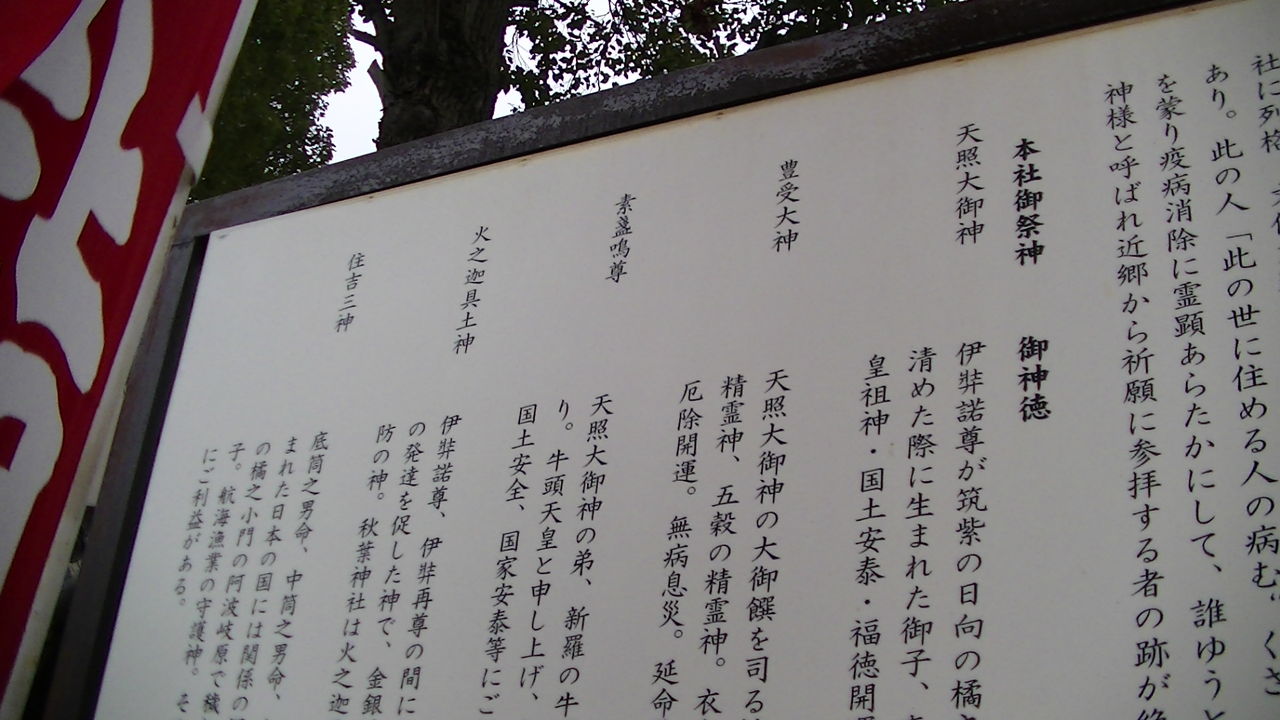 社に列格
あり。此の人「此の世に住める人の病む
を蒙り疫病消除に霊顕あらたかにして、誰ゆうと
神様と呼ばれ近郷から祈願に参拝する者の跡が
本社御祭神 御神徳
天照大御神 伊弉諾尊が筑紫の日向の橘
清めた際に生まれた御子、
皇祖神・国土安泰・福徳開
豊受大神 天照大御神の大御饌を司る
精霊神、五穀の精霊神。衣
厄除開運。無病息災。延命
素盞鳴尊 天照大御神の弟、新羅の牛
り。牛頭天皇と申し上げ、
国土安全、国家安泰等にご
火之迦具土神 伊弉諾尊、伊弉再尊の間に
の発達を促した神で、金銀
防の神。秋葉神社は火之迦
住吉三神 底筒之男命、中筒之男命、
まれた日本の国には関係の
の橘之小門の阿波岐原で穢
子。航海漁業の守護神。そ
にご利益がある。